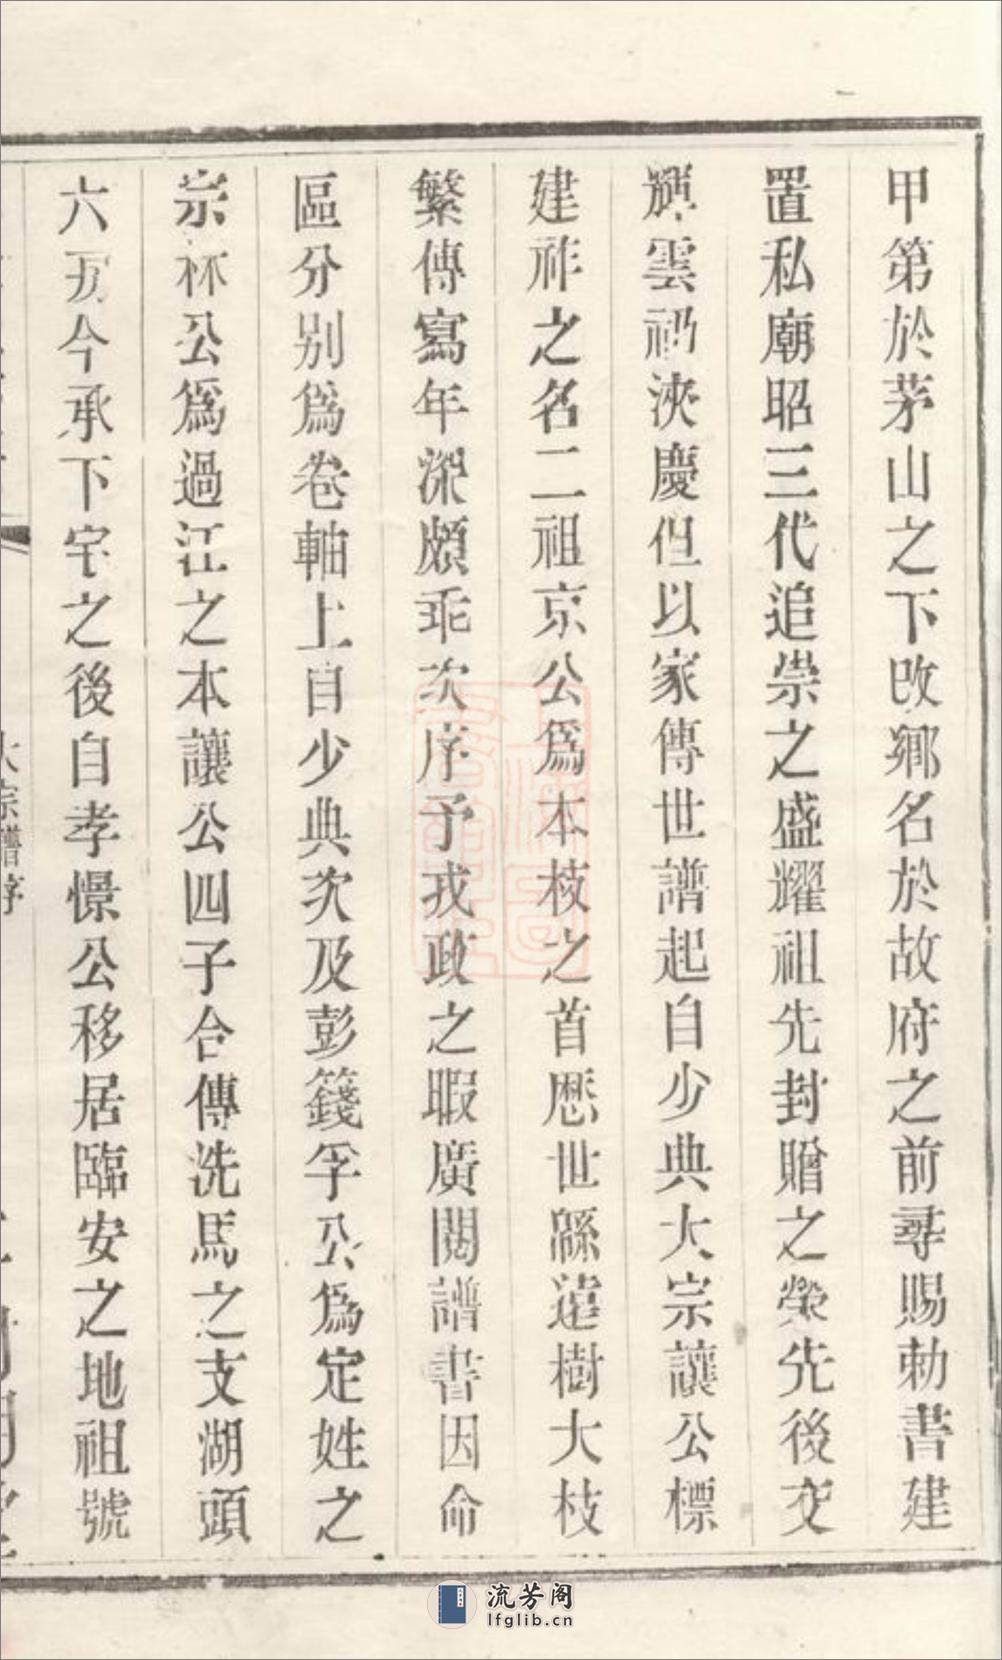 甲第於茅山之下改鄉名於故府之前尋賜勅書建
置私廟昭三代追崇之盛耀祖先封贈之榮先後交
輝雲礽浹慶但以家傳世譜起自少典大宗讓公標
建祚之名二祖京公爲本枝之首歷世緜遠樹大枝
繁傳寫年深頗乖次序予戎政之暇廣閱譜書因命
區分别爲卷軸上自少典次及彭籛孚公爲定姓之
宗林公爲過江之本讓公四子合傳洗馬之支湖頭
六五今承下宅之後自孝憬公移居臨安之地祖號
大宗譜序
流芳阁
lfglib.cn